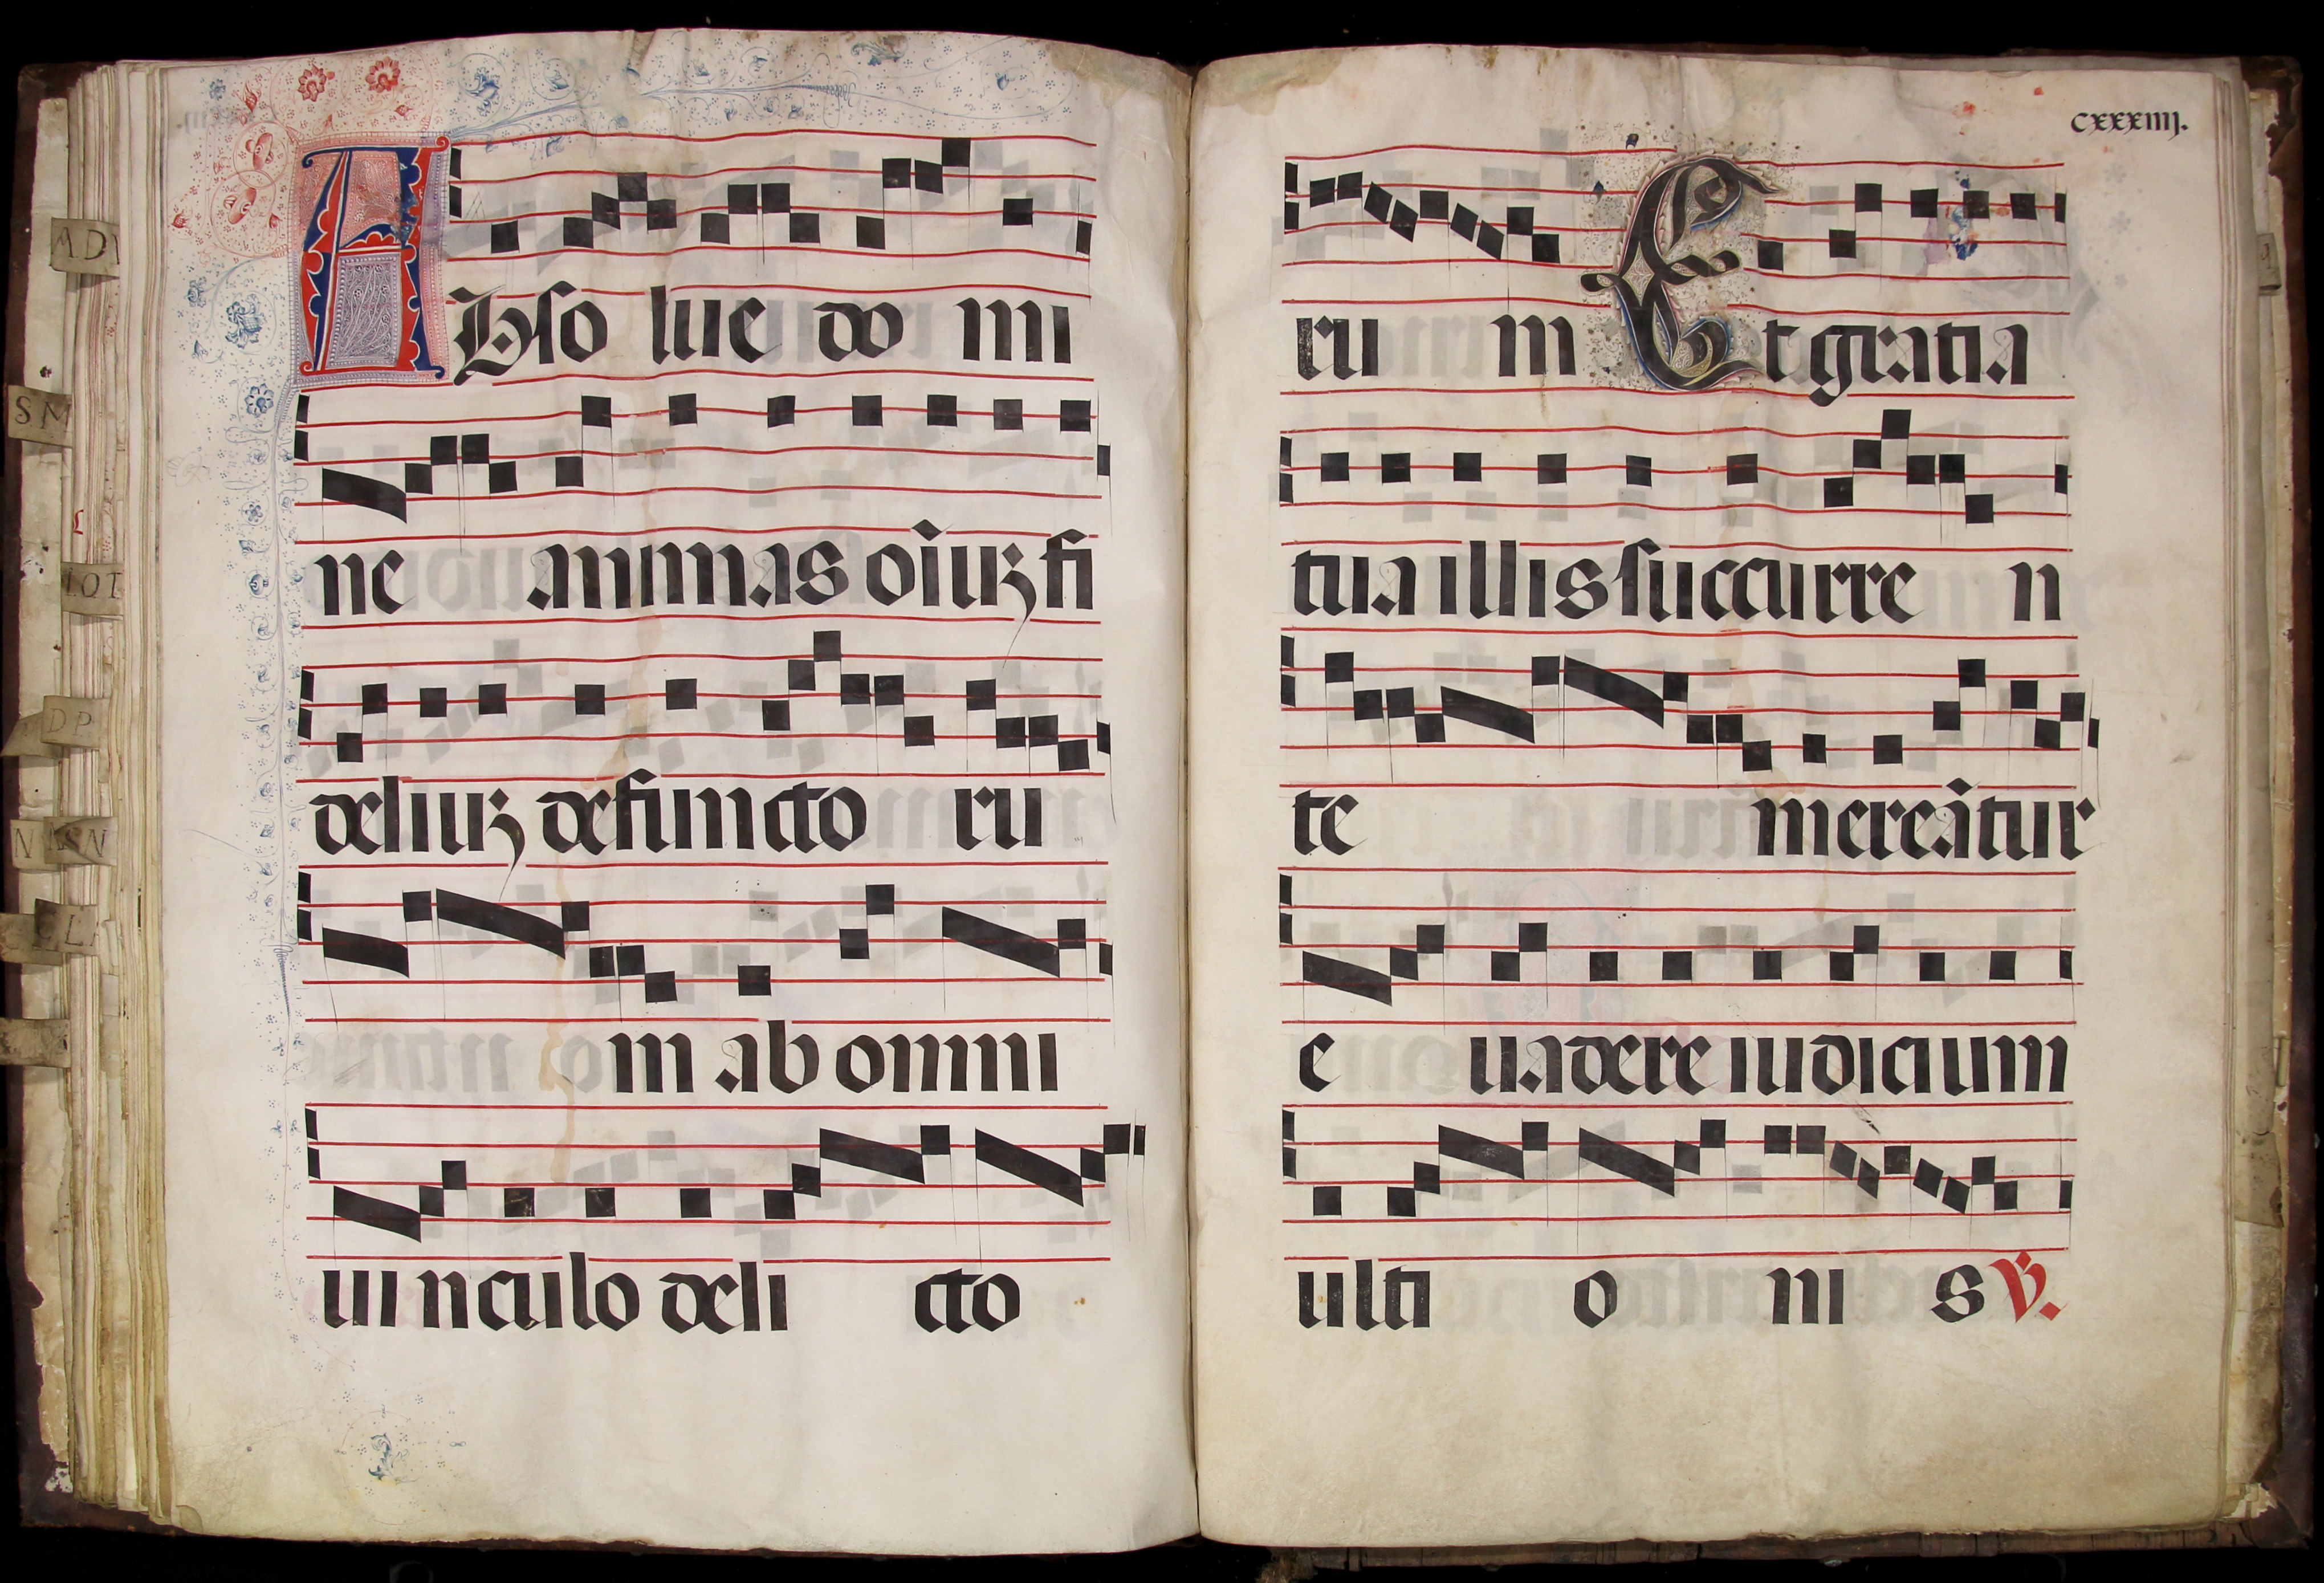 Abso lue do mi
ne animas oı̃uꝫ fi
deliuꝫ defuncto ru
m ab omni
uinculo deli cto
cxxxiiij.
ru m Et gratia
tua illis succurre n
te mereãtur
e uadere iudicium
ulti o ni s ℣.
AD
SM
DP